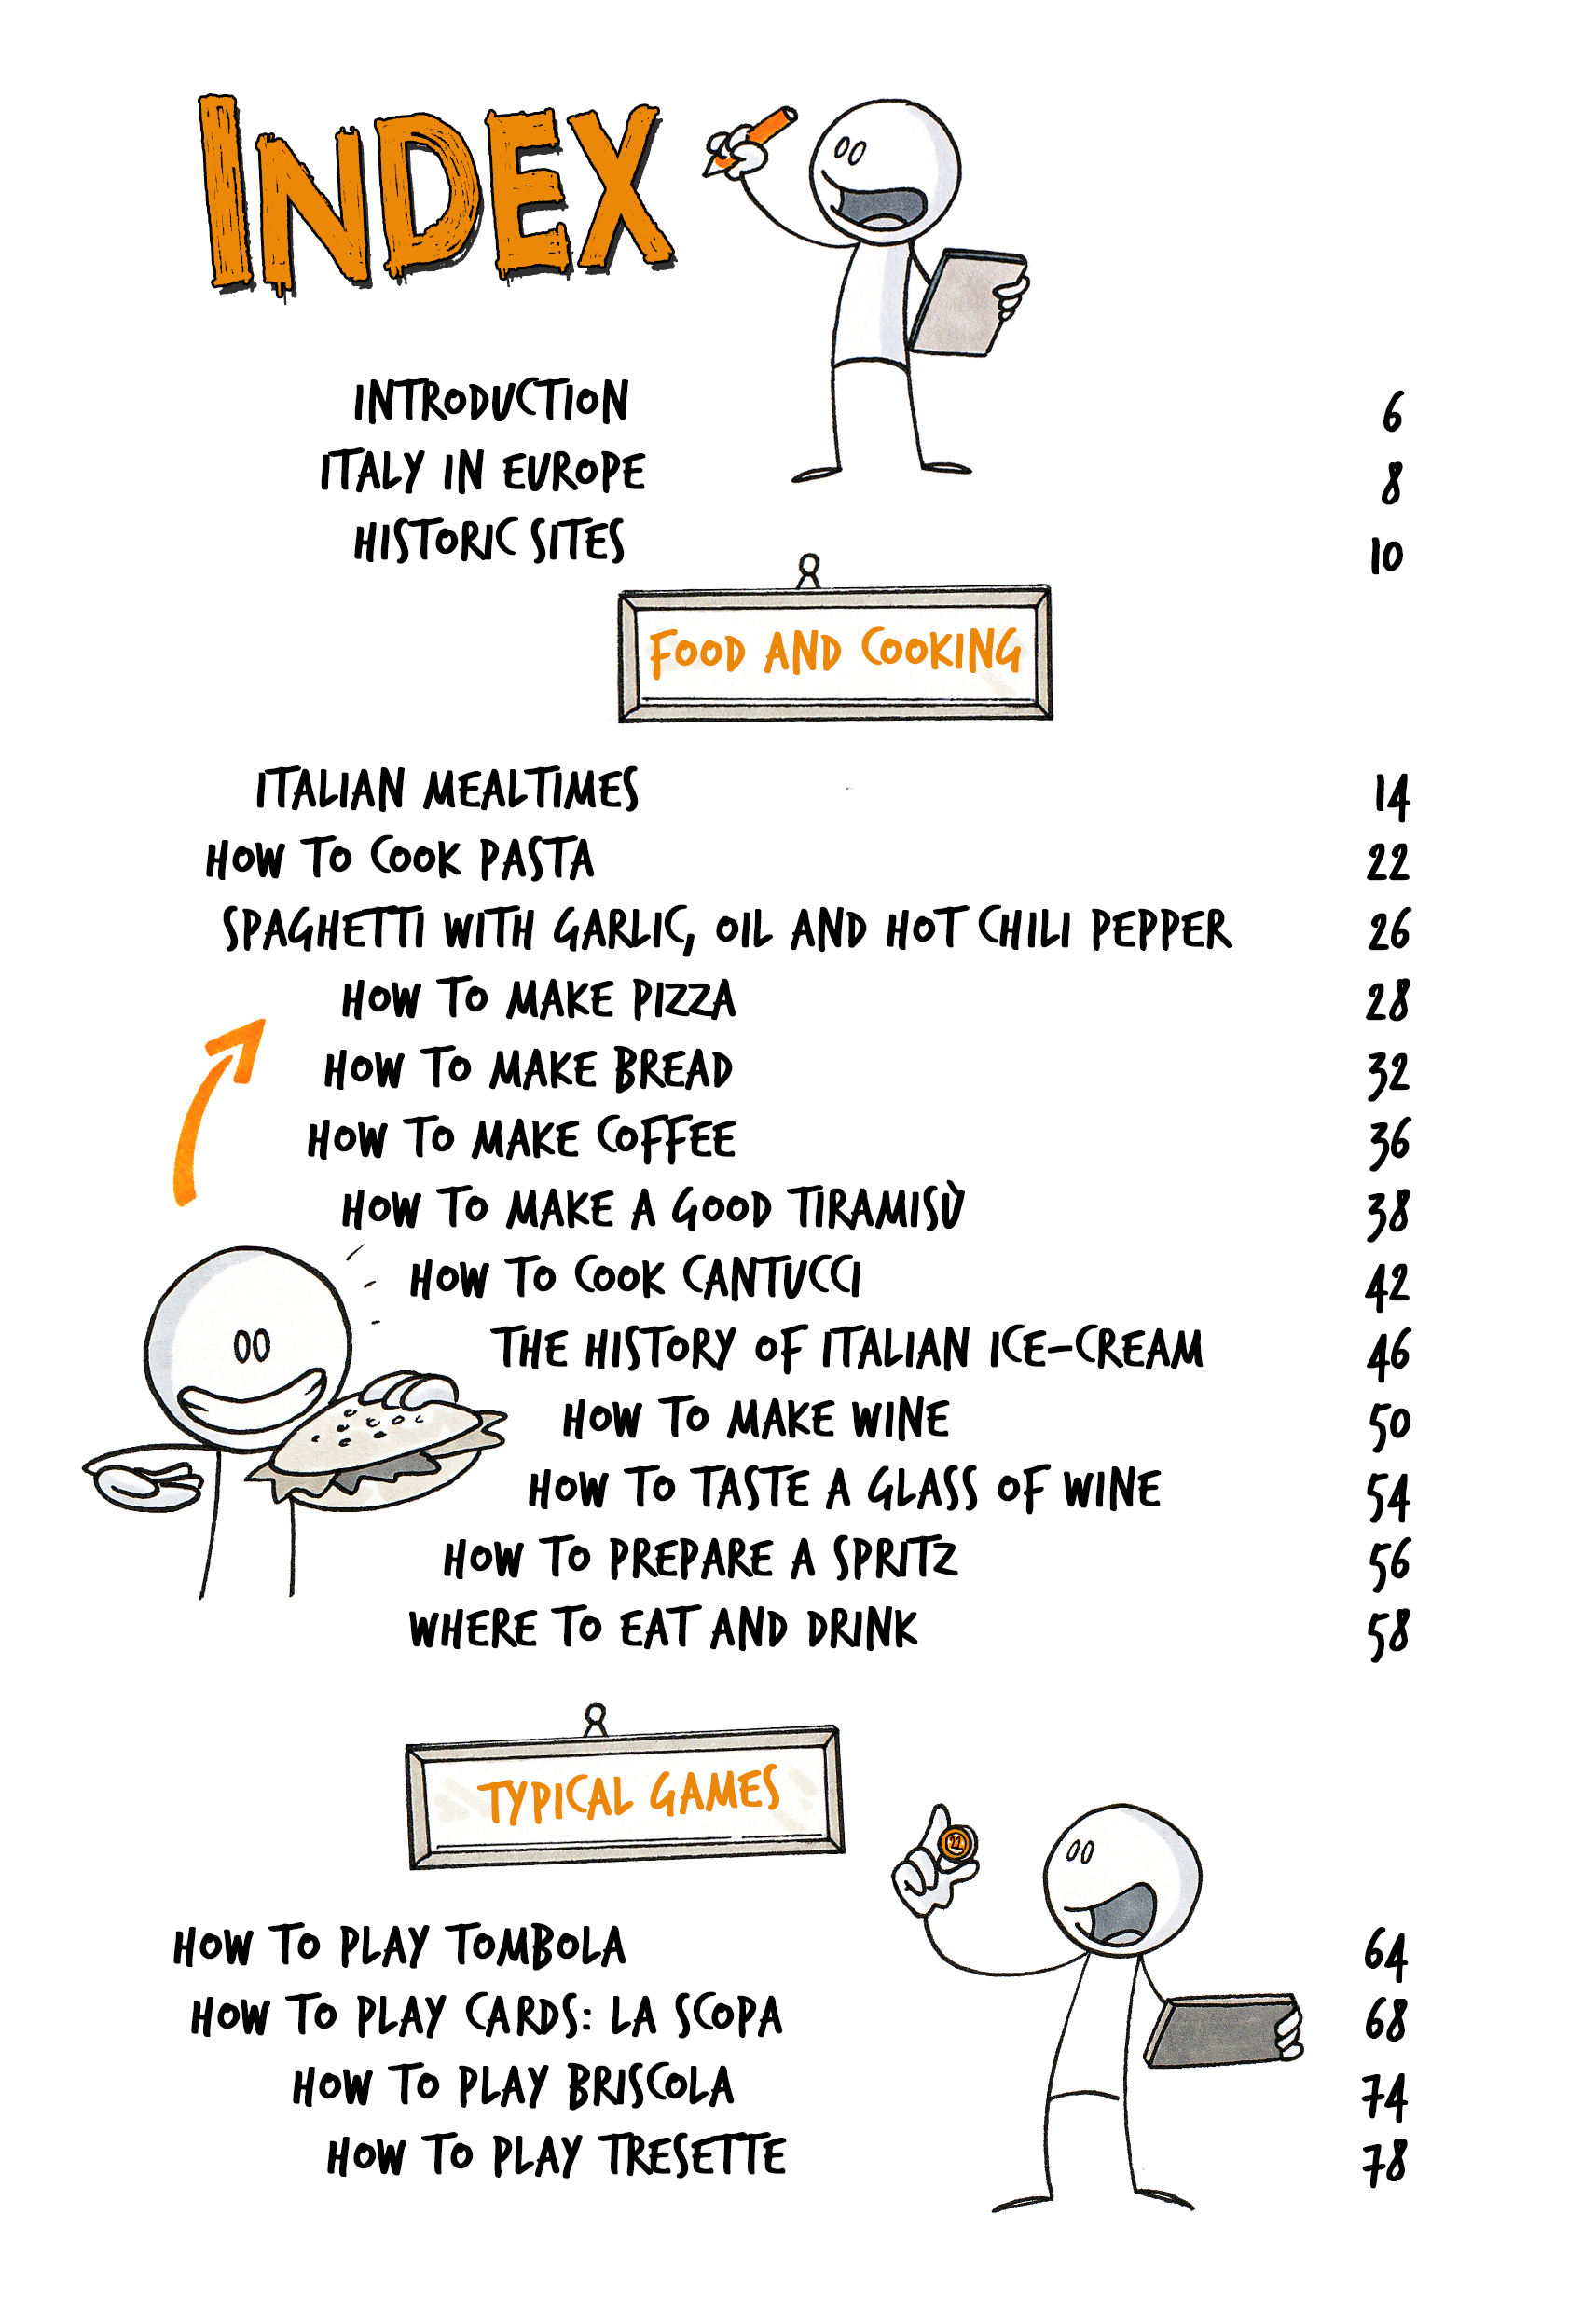 INDEX
INTRODUCTION 6
ITALY IN EUROPE 8
HISTORIC SITES 10
FOOD AND COOKING
ITALIAN MEALTIMES 14
HOW TO COOK PASTA 22
SPAGHETTI WITH GARLIC, OIL AND HOT CHILI PEPPER 26
HOW TO MAKE PIZZA 28
HOW TO MAKE BREAD 32
HOW TO MAKE COFFEE 36
HOW TO MAKE A GOOD TIRAMISÙ 38
HOW TO COOK CANTUCCI 42
THE HISTORY OF ITALIAN ICE-CREAM 46
HOW TO MAKE WINE 50
HOW TO TASTE A GLASS OF WINE 54
HOW TO PREPARE A SPRITZ 56
WHERE TO EAT AND DRINK 58
TYPICAL GAMES
22
HOW TO PLAY TOMBOLA 64
HOW TO PLAY CARDS: LA SCOPA 68
HOW TO PLAY BRISCOLA 74
HOW TO PLAY TRESETTE 78